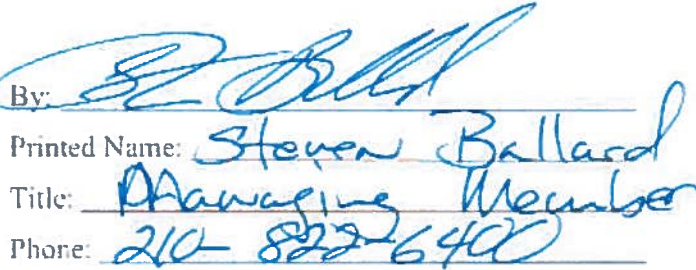 By:
Printed Name: Steven Ballard
Title: Managing Member
Phone: 210-822-6400